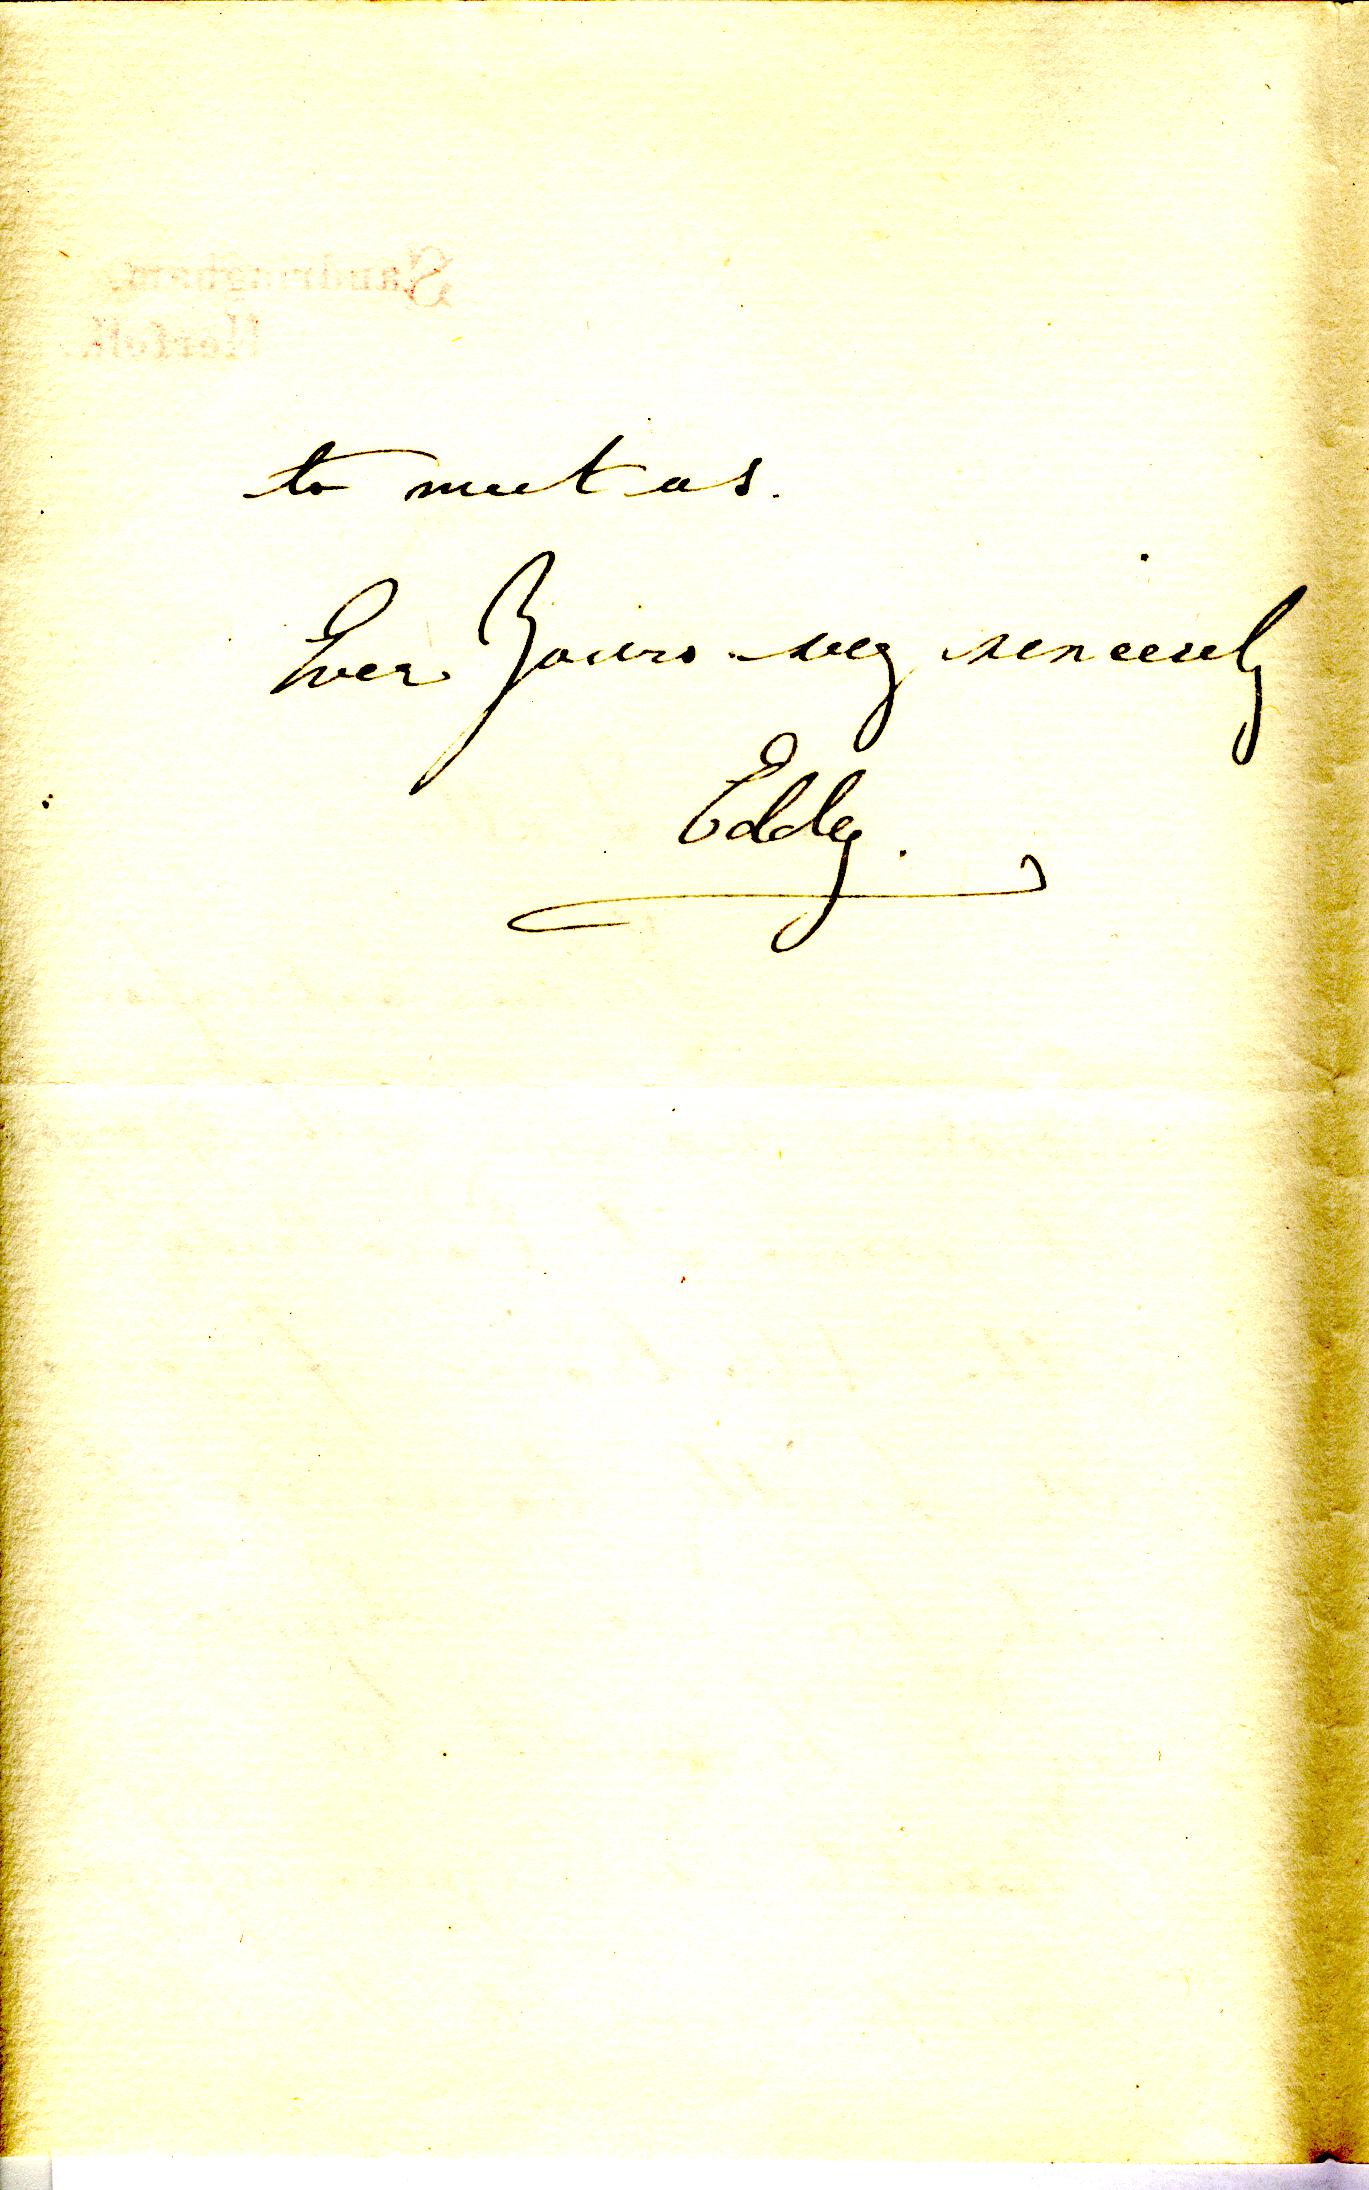 Sandringham,
Norfolk.
to meet us.
Ever Yours very sincerely
Eddy.